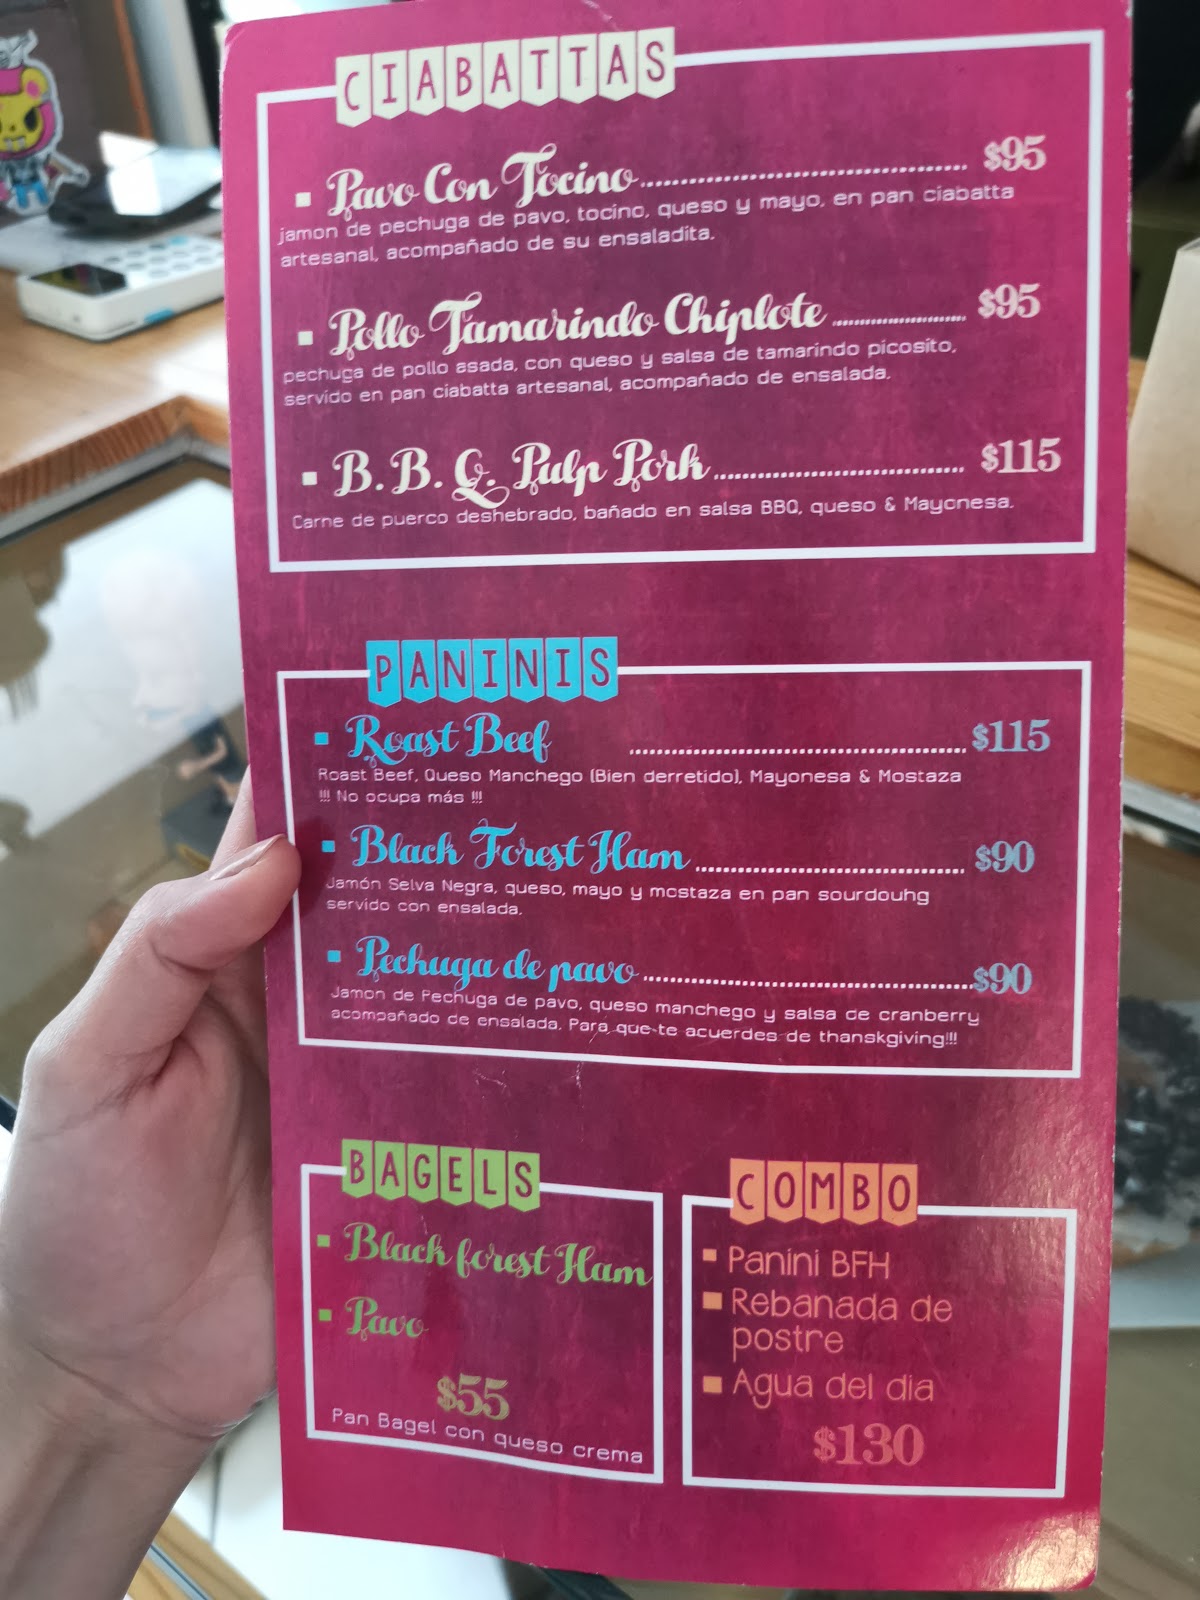 CIABATTAS
Pavo Con Tocino $95
jamon de pechuga de pavo, tocino, queso y mayo, en pan ciabatta
artesanal, acompañado de su ensaladita.
Pollo Tamarindo Chiplote $95
pechuga de pollo asada, con queso y salsa de tamarindo picosito,
servido en pan ciabatta artesanal, acompañado de ensalada.
B.B.Q. Pulp Pork $115
Carne de puerco deshebrado, bañado en salsa BBQ, queso & Mayonesa.
PANINIS
Roast Beef $115
Roast Beef, Queso Manchego (Bien derretido), Mayonesa & Mostaza
!!! No ocupa más !!!
Black Forest Ham $90
Jamón Selva Negra, queso, mayo y mostaza en pan sourdouhg
servido con ensalada.
Pechuga de pavo $90
Jamon de Pechuga de pavo, queso manchego y salsa de cranberry
acompañado de ensalada. Para que te acuerdes de thanskgiving!!!
BAGELS
Black forest Ham
Pavo
$55
Pan Bagel con queso crema
COMBO
Panini BFH
Rebanada de
postre
Agua del dia
$130